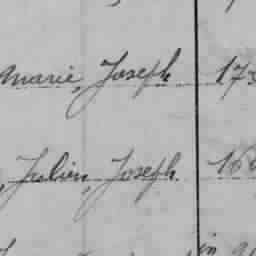 Marie, Joseph 173
, Julien, Joseph. 16